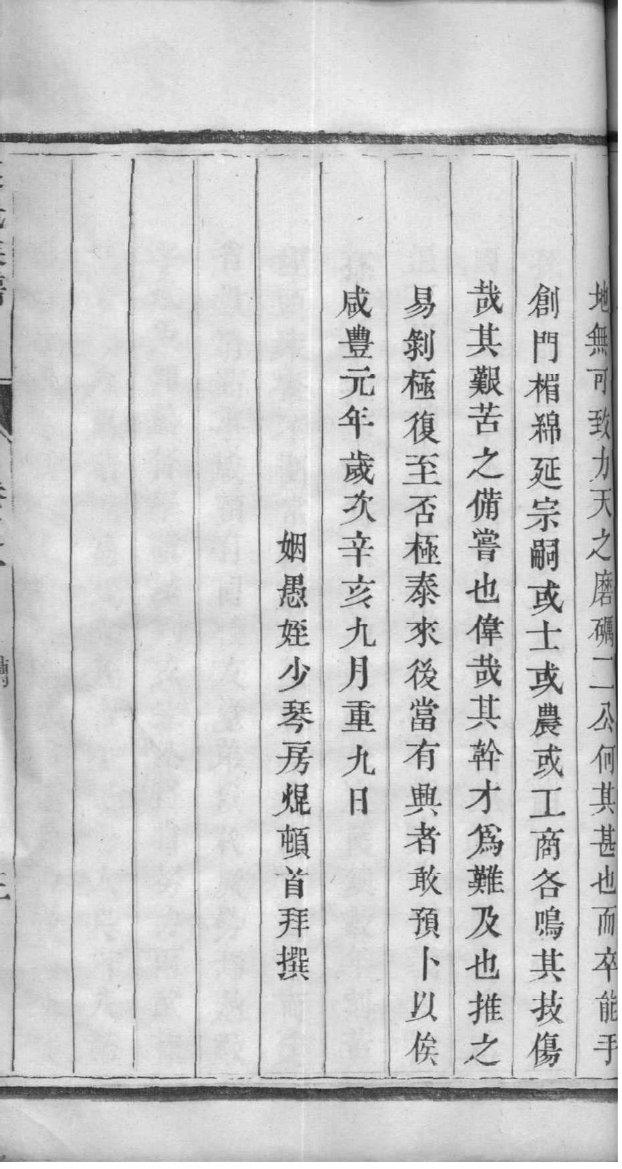 地無可致力天之磨礪二公何其甚也而卒能手
創門楣綿延宗嗣或士或農或工商各鳴其技傷
哉其艱苦之備嘗也偉哉其幹才爲難及也推之
易剝極復至否極泰來後當有興者敢預卜以俟
咸豐元年歲次辛亥九月重九日
姻愚姪少琴房焜頓首拜撰